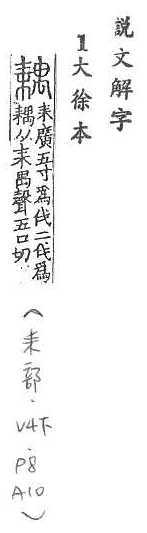 說文解字
1大徐本
耦 耒廣五寸爲伐二伐爲
耦从耒禺聲五口切
(耒部.V4下.P8A10)